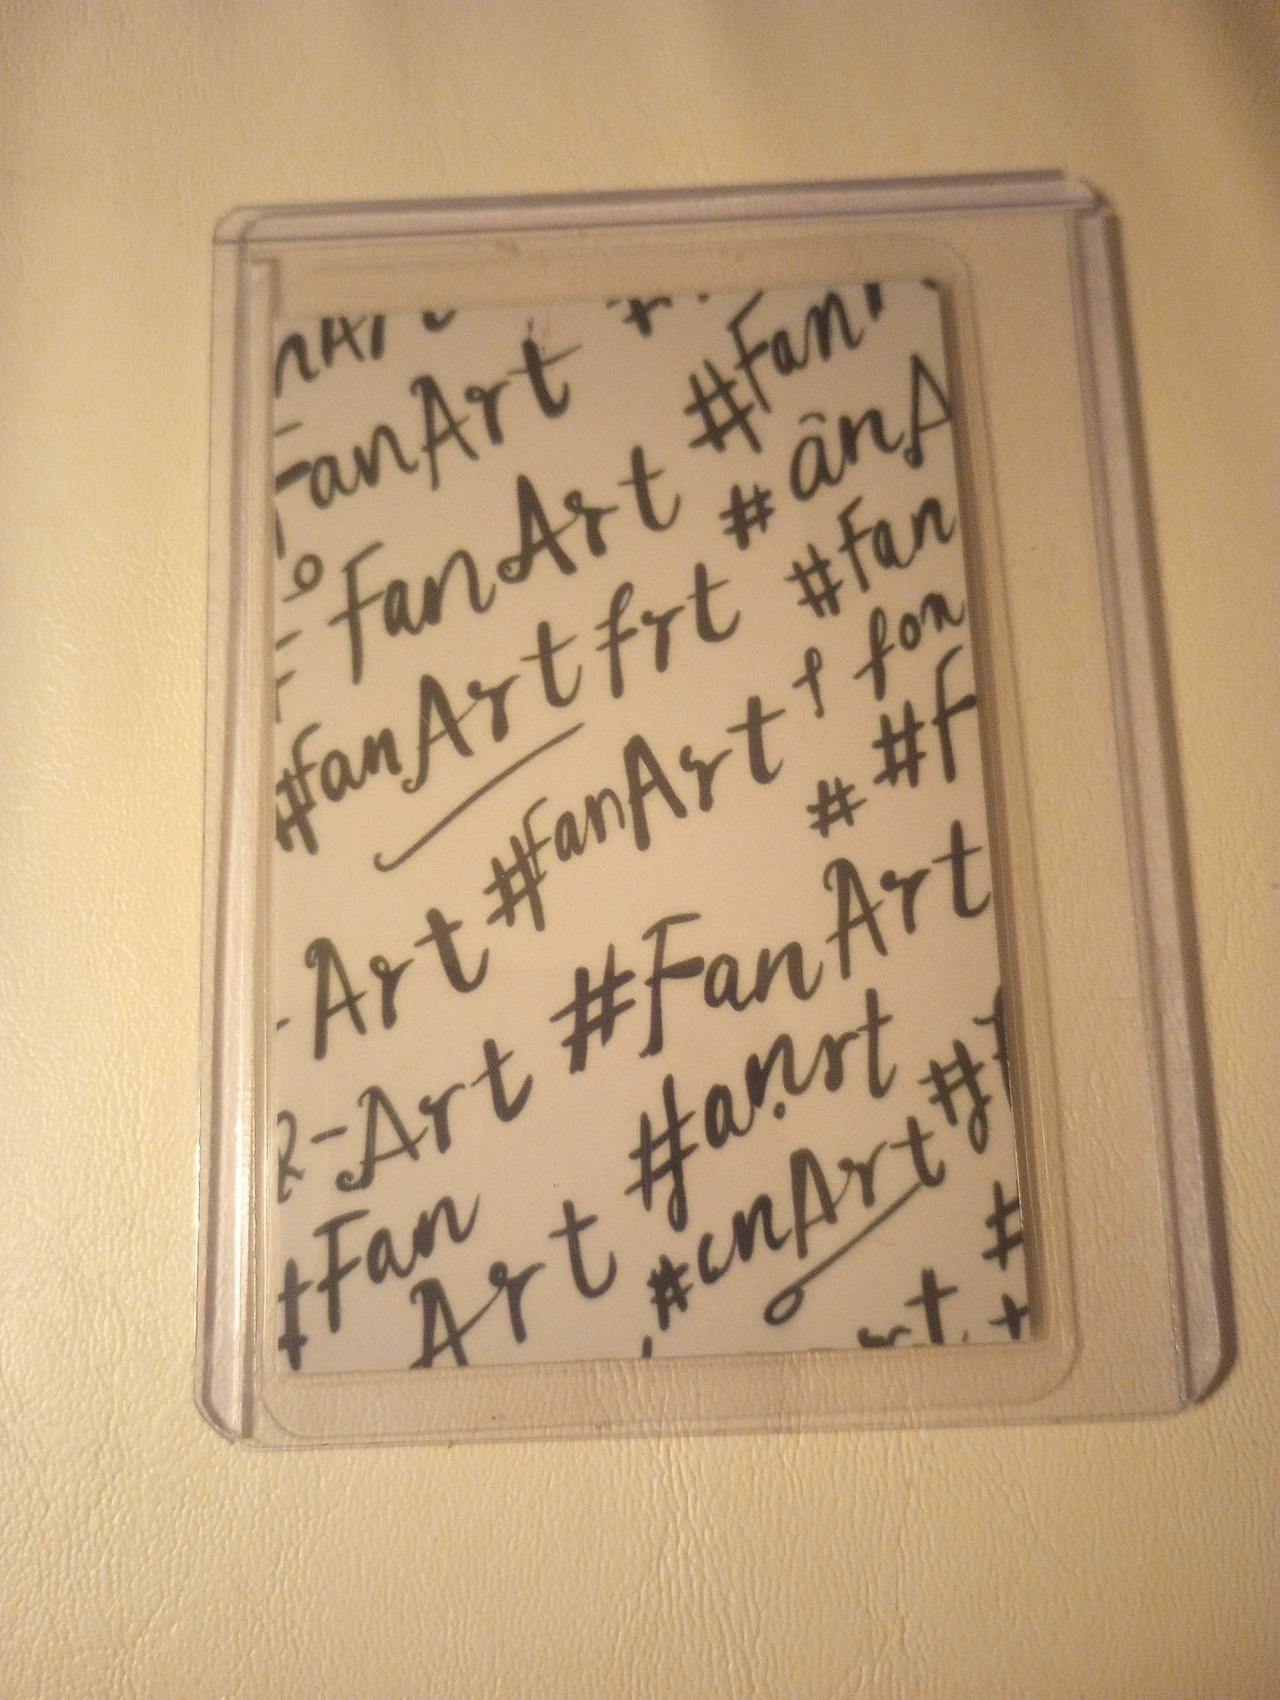 nArt
#Fan
FanArt
# ânA
FanArt
#Fan
#FanArt frt
f fon
#FanArt
# #F
-Art
#FanArt
R-Art
#anrt
#f
#Fan
#cnArt
Art
rt